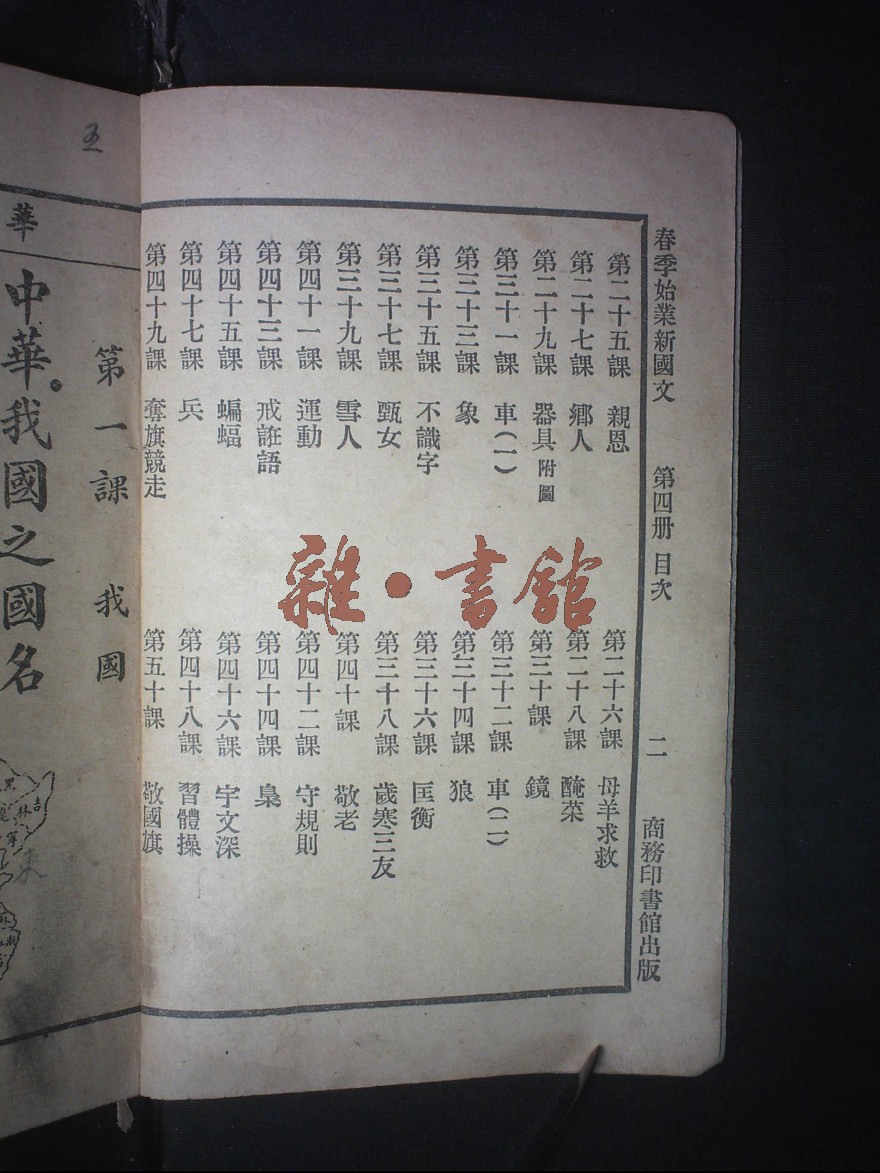 春季始業新國文 第四册 目次 二 商務印書館出版
第二十五課 親恩
第二十六課 母羊求救
第二十七課 鄉人
第二十八課 醃菜
第二十九課 器具 附圖
第三十課 鏡
第三十一課 車(一)
第三十二課 車(二)
第三十三課 象
第三十四課 狼
第三十五課 不識字
第三十六課 匡衡
第三十七課 甄女
第三十八課 歲寒三友
第三十九課 雪人
第四十課 敬老
第四十一課 運動
第四十二課 守規則
第四十三課 戒誑語
第四十四課 梟
第四十五課 蝙蝠
第四十六課 宇文深
第四十七課 兵
第四十八課 習體操
第四十九課 奪旗競走
第五十課 敬國旗
雜·書館
五
華
第一課 我國
中華。我國之國名
黑
吉林